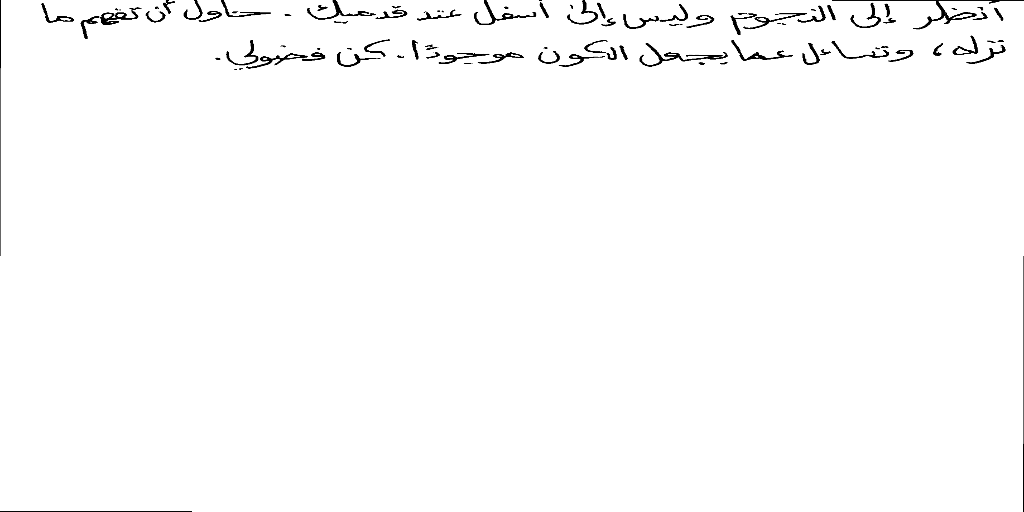 أنظر إلى النجوم وليس إلى أسفل عند قدميك. حاول أن تفهم ما
تراه، وتساءل عما يجعل الكون موجودًا. كن فضولي.